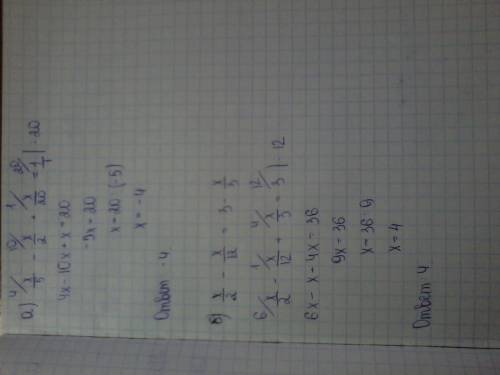 а) 4/ x/5 - 10/ x/2 + 1/ x/20 = 20/ 1/1 | · 20
4x - 10x + x = 20
-5x = 20
x = 20 : (-5)
x = -4
Ответ -4.
б) x/2 - x/12 = 3 - x/3
6/ x/2 - 1/ x/12 + 4/ x/3 = 12/ 3 | · 12
6x - x + 4x = 36
9x = 36
x = 36 : 9
x = 4
Ответ 4